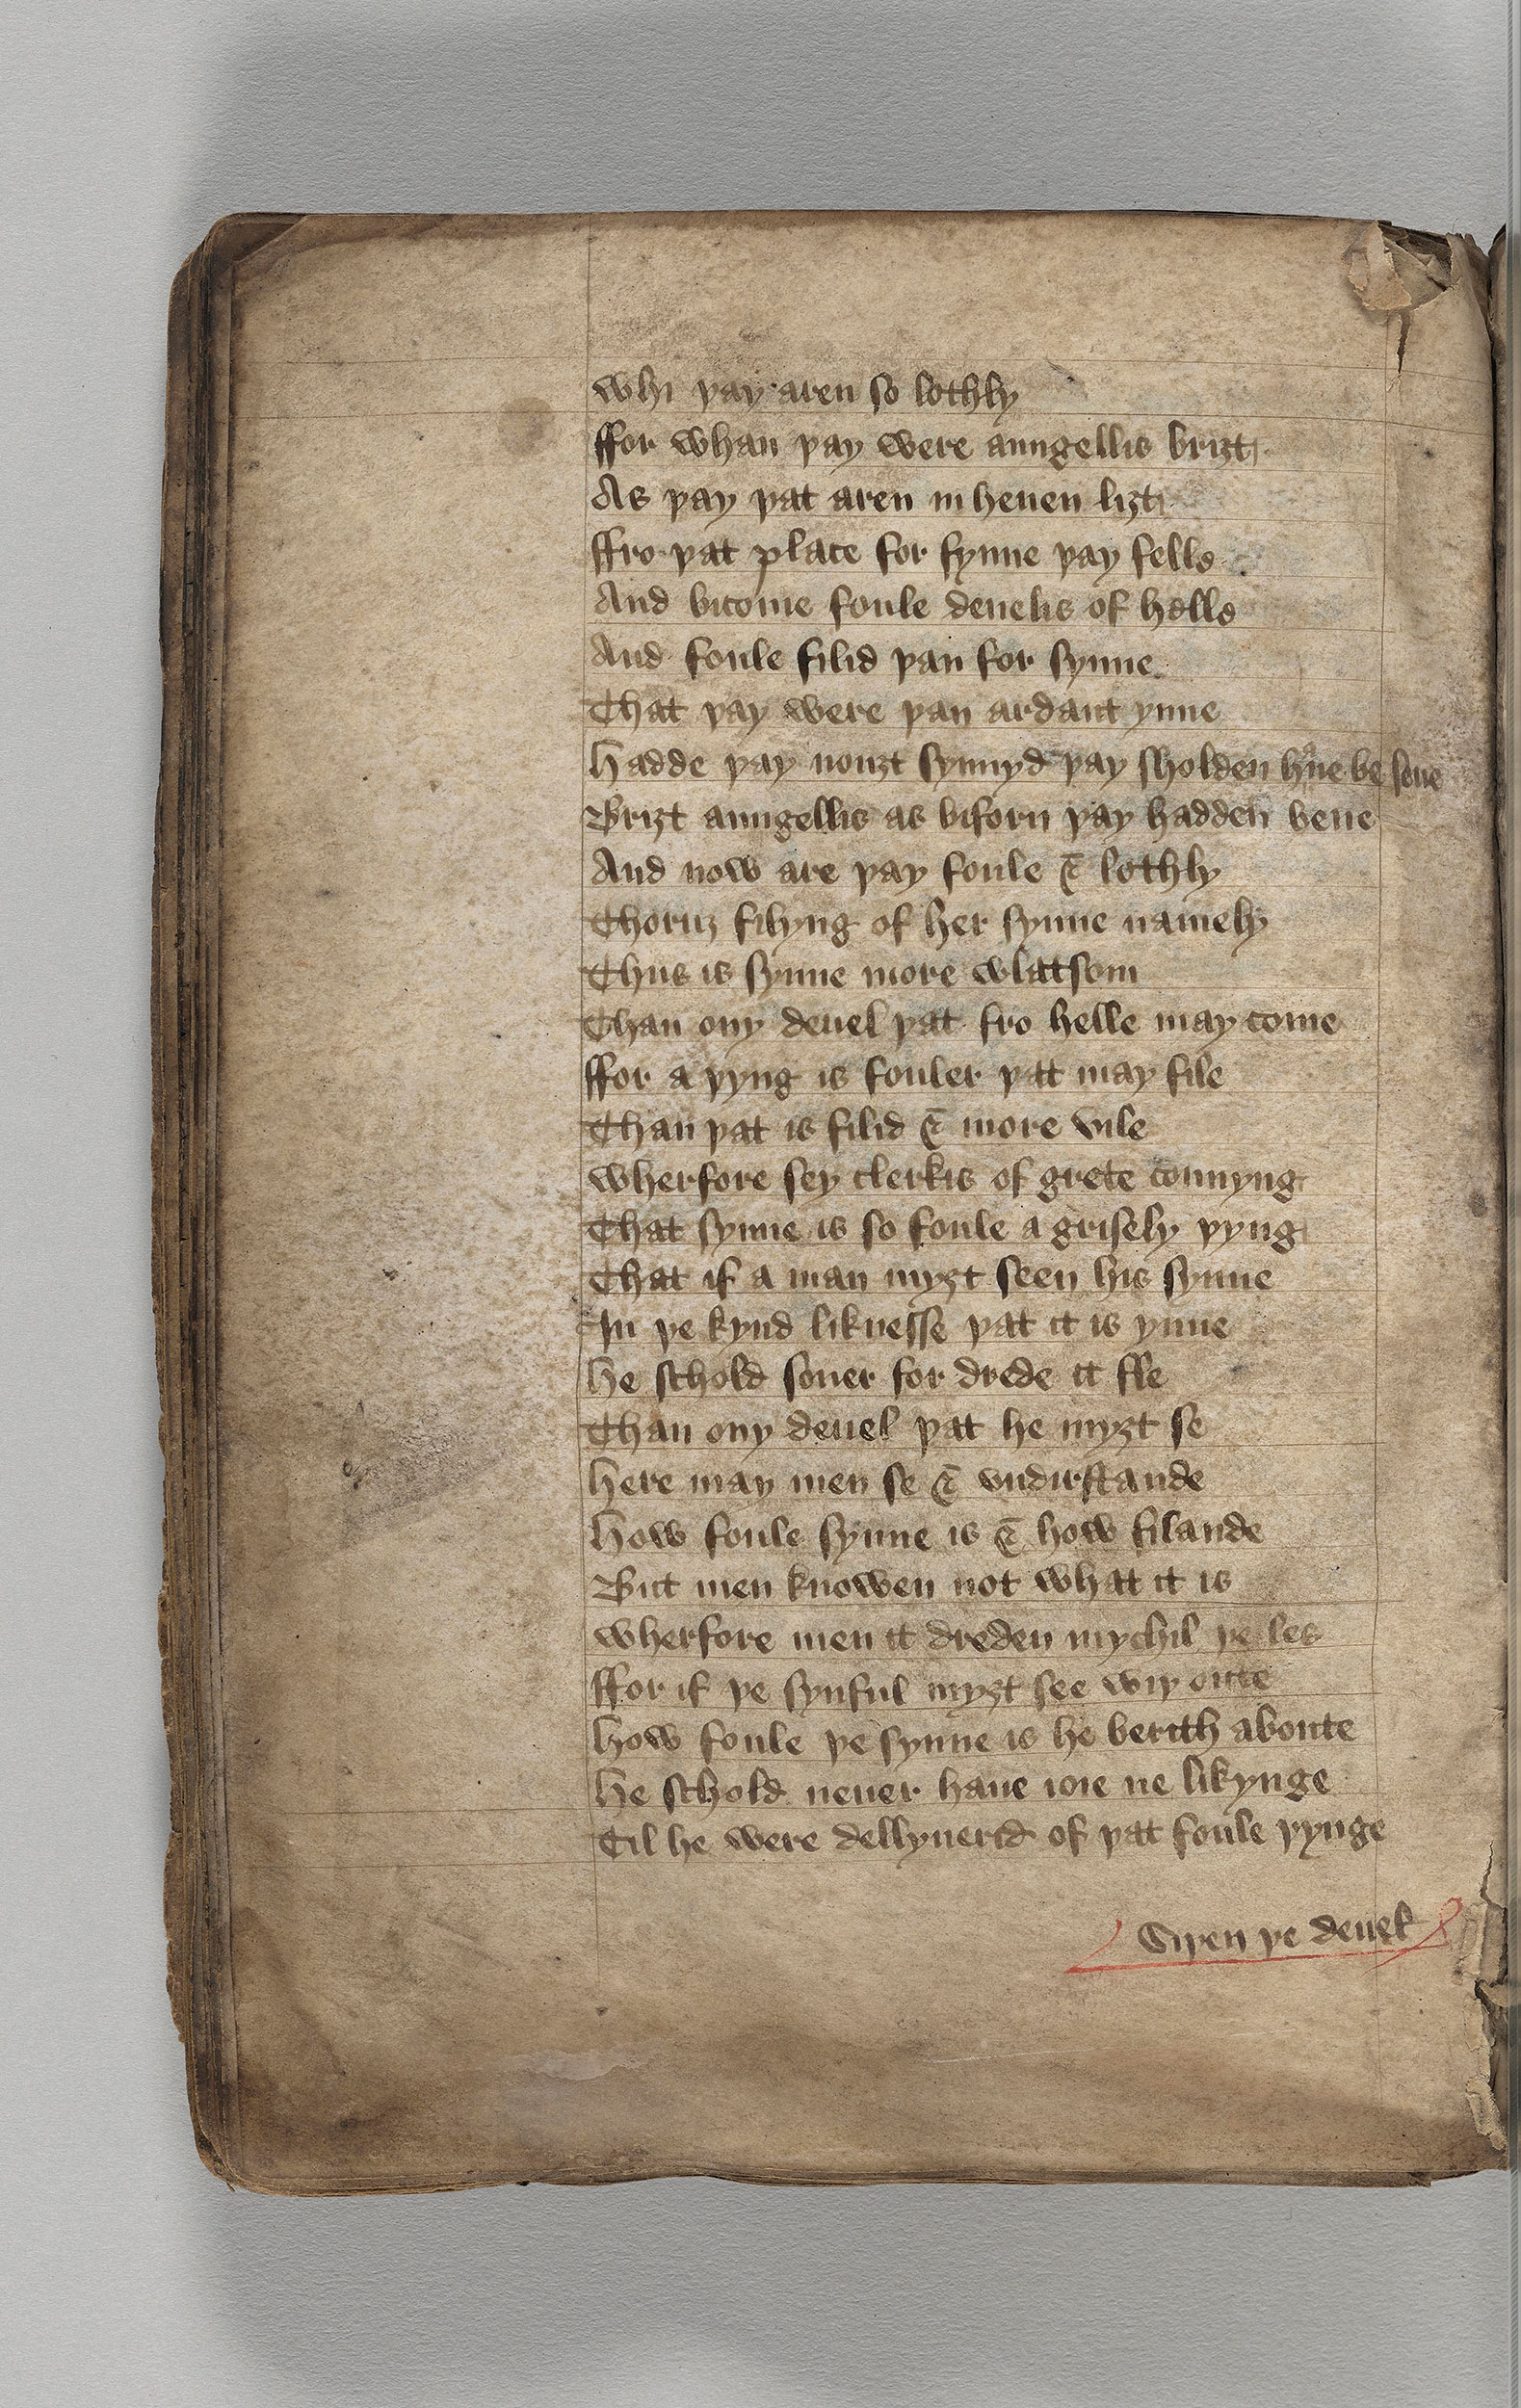 Whi þay aren so lothly
ffor whan þay were aungellis briȝt
As þay þat aren in heuen liȝt
ffro þat place for synne þay felle
And bicome foule deuelis of helle
And foule filid þan for synne
That þay were þan ardaut ynne
Hadde þay nouȝt synnyd þay sholden haue be sene
Briȝt aungellis as biforn þay hadden bene
And now are þay foule & lothly
Thoruȝ filyng of her synne namely
Thus is synne more wlatsom
Than ony deuel þat fro helle may come
ffor a þyng is fouler þat may file
Than þat is filid & more vile
Wherfore sey clerkis of grete connyng
That synne is so foule a grisely þyng
That if a man myȝt seen his synne
In þe kynd liknesse þat it is ynne
He schold soner for drede it fle
Than ony deuel þat he myȝt se
Here may men se & vndirstande
How foule synne is & how filande
But men knowen not what it is
Wherfore men it dreden mychil þe les
ffor if þe synful myȝt see wiþ oute
How foule þe synne is he berith aboute
He schold neuer haue ioie ne likynge
Til he were dellyuerid of þat foule þynge
Siþen þe deuel